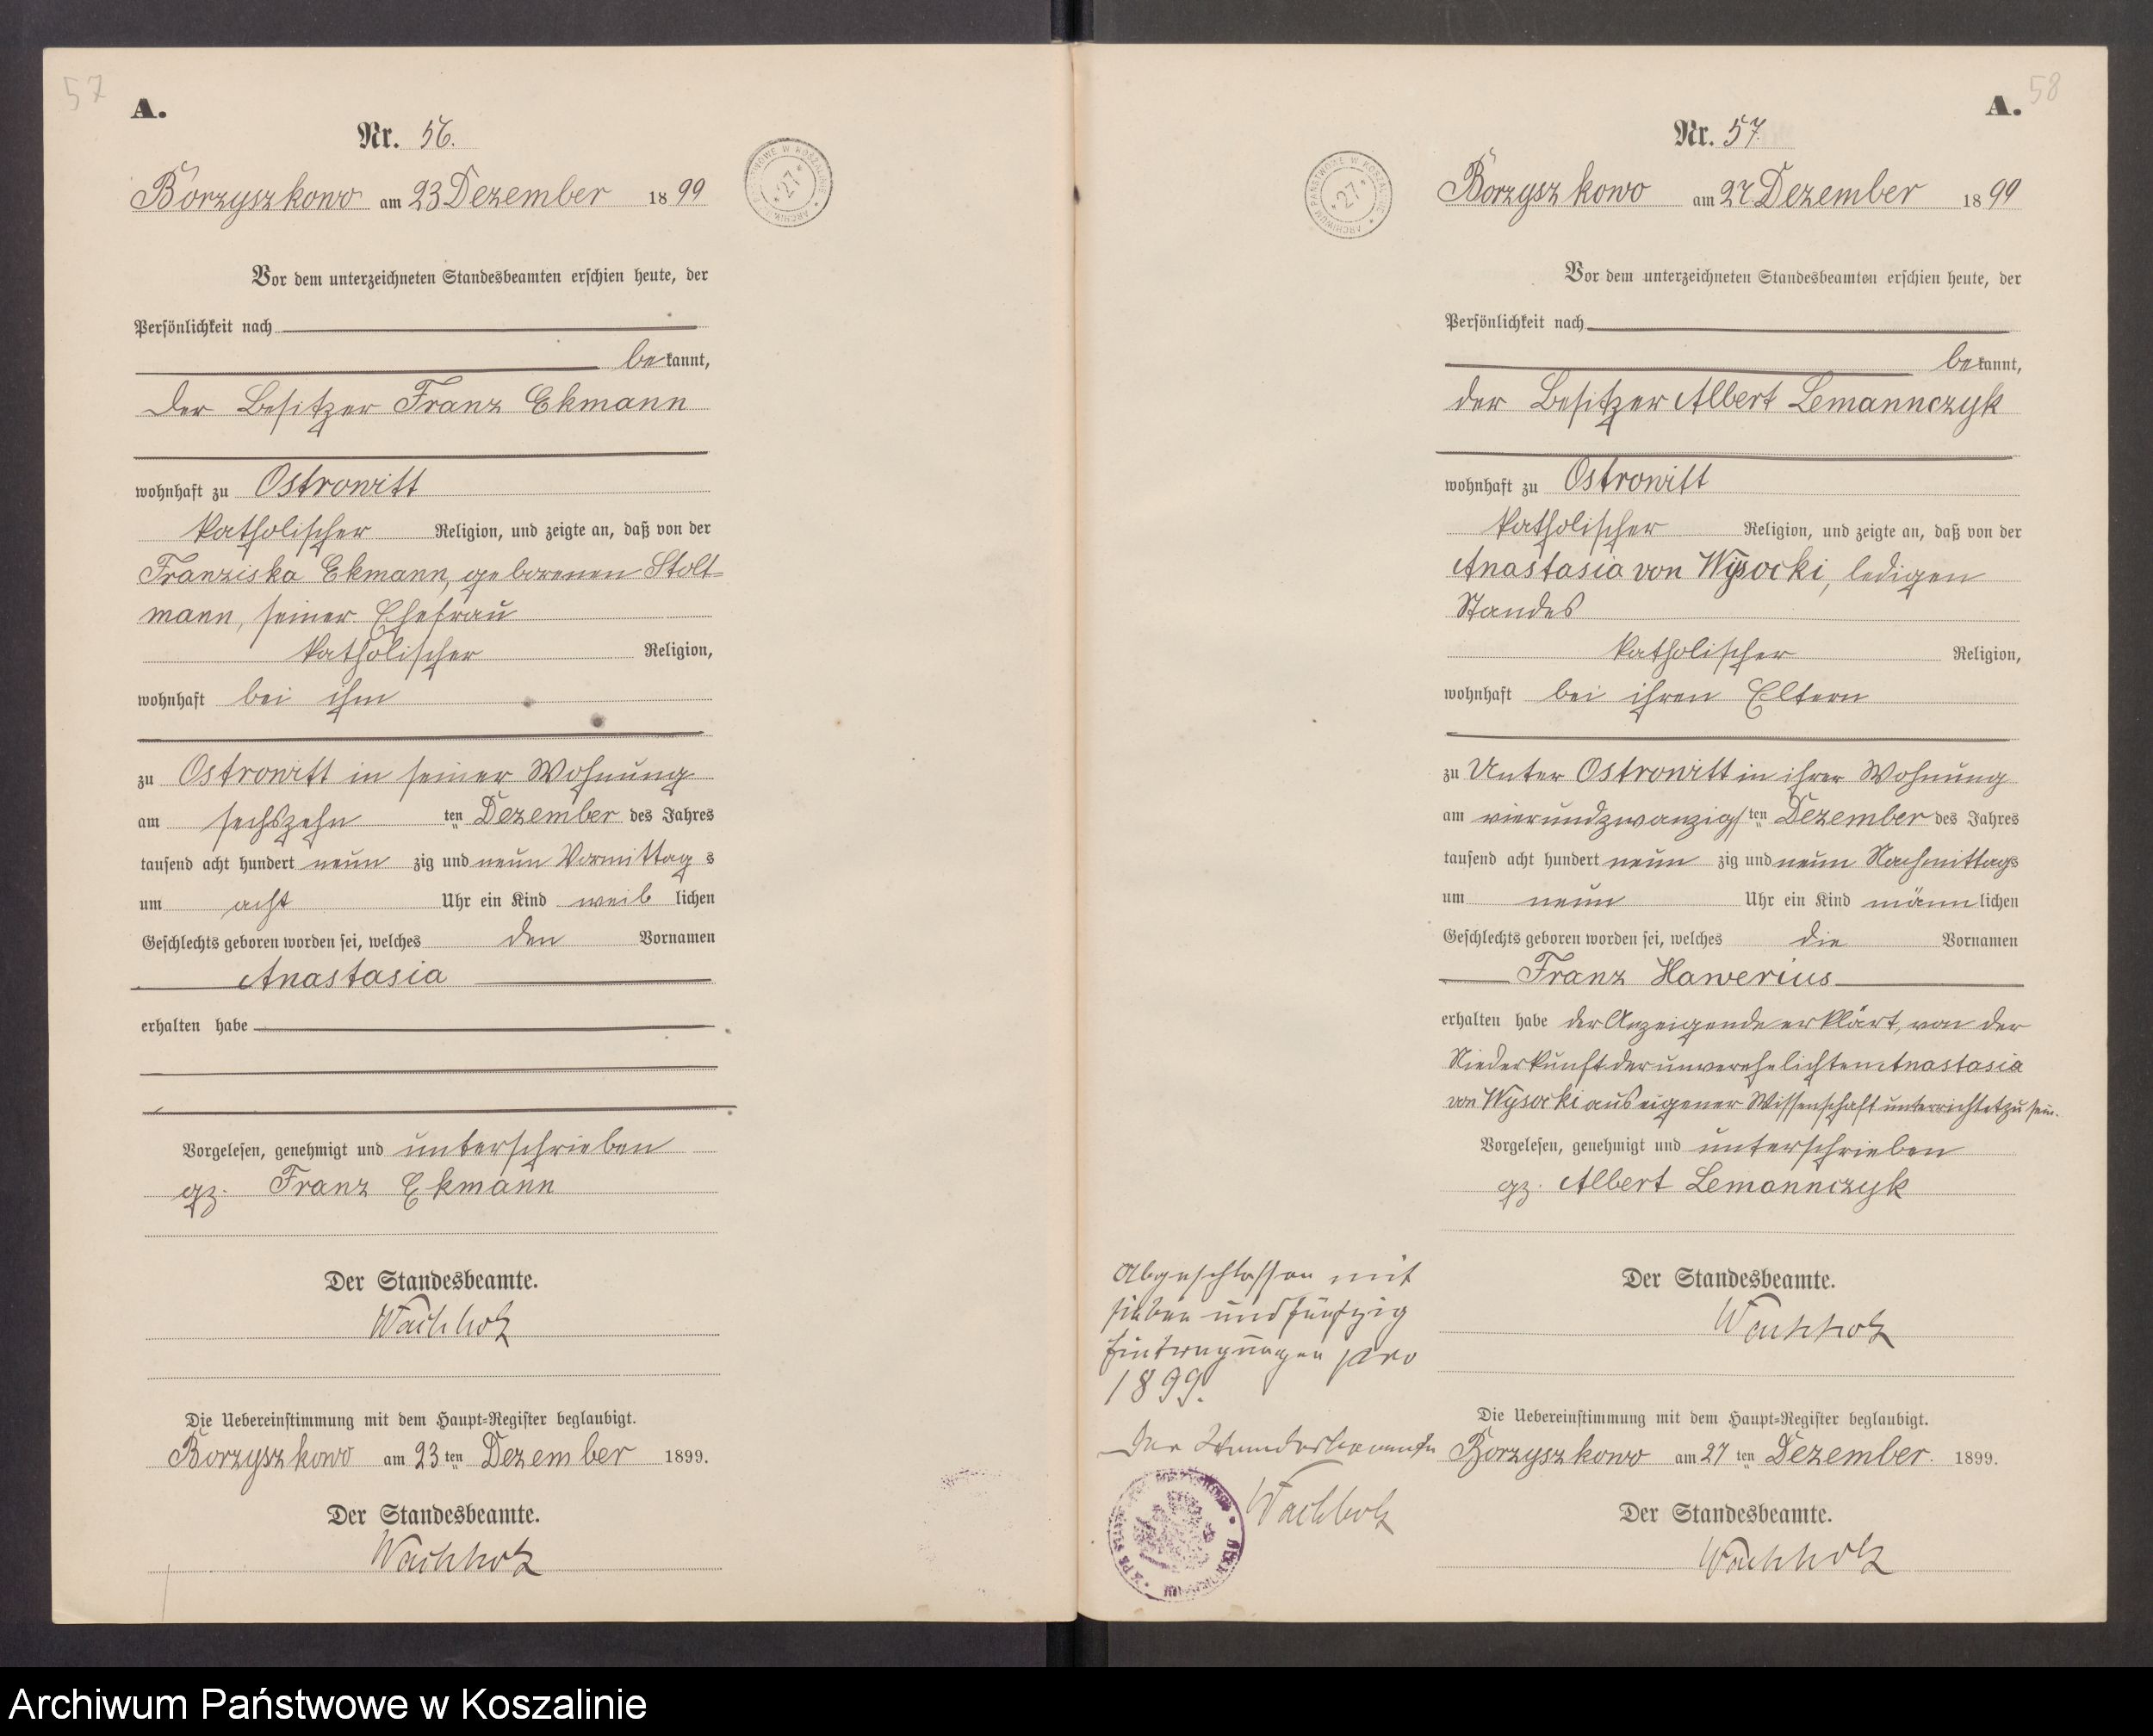 57
A.
Nr. 56.
Borzyszkowo am 23 Dezember 1899
Vor dem unterzeichneten Standesbeamten erschien heute, der
Persönlichkeit nach
bekannt,
der Besitzer Franz Ekmann
wohnhaft zu Ostrowitt
katholischer Religion, und zeigte an, daß von der
Franziska Ekmann, geborenen Stolt-
mann, seiner Ehefrau
katholischer Religion,
wohnhaft bei ihm
zu Ostrowitt in seiner Wohnung
am sechszehn ten Dezember des Jahres
tausend acht hundert neun zig und neun Vormittags
um acht Uhr ein Kind weiblichen
Geschlechts geboren worden sei, welches den Vornamen
Anastasia
erhalten habe
Vorgelesen, genehmigt und unterschrieben
gz. Franz Ekmann
Der Standesbeamte.
Wachholz
Die Uebereinstimmung mit dem Haupt-Register beglaubigt.
Borzyszkowo am 23 ten Dezember 1899.
Der Standesbeamte.
Wachholz
ARCHIWUM PAŃSTWOWE W KOSZALINIE
27
58
A.
Nr. 57.
Borzyszkowo am 27. Dezember 1899
Vor dem unterzeichneten Standesbeamten erschien heute, der
Persönlichkeit nach
bekannt,
der Besitzer Albert Lemannczyk
wohnhaft zu Ostrowitt
katholischer Religion, und zeigte an, daß von der
Anastasia von Wysocki, ledigen
Standes
katholischer Religion,
wohnhaft bei ihren Eltern
zu Unter Ostrowitt in ihrer Wohnung
am vierundzwanzigsten Dezember des Jahres
tausend acht hundert neun zig und neun Nachmittags
um neun Uhr ein Kind männlichen
Geschlechts geboren worden sei, welches die Vornamen
Franz Xawerius
erhalten habe der Anzeigende erklärt, von der
Niederkunft der unverehelichten Anastasia
von Wysocki aus eigener Wissenschaft unterrichtet zu sein.
Vorgelesen, genehmigt und unterschrieben
gz. Albert Lemannczyk
Der Standesbeamte.
Wachholz
Die Uebereinstimmung mit dem Haupt-Register beglaubigt.
Borzyszkowo am 27 ten Dezember 1899.
Der Standesbeamte.
Wachholz
ARCHIWUM PAŃSTWOWE W KOSZALINIE
27
Abgeschlossen mit
sieben und fünfzig
Eintragungen pro
1899.
Der Standesbeamte
Wachholz
Archiwum Państwowe w Koszalinie